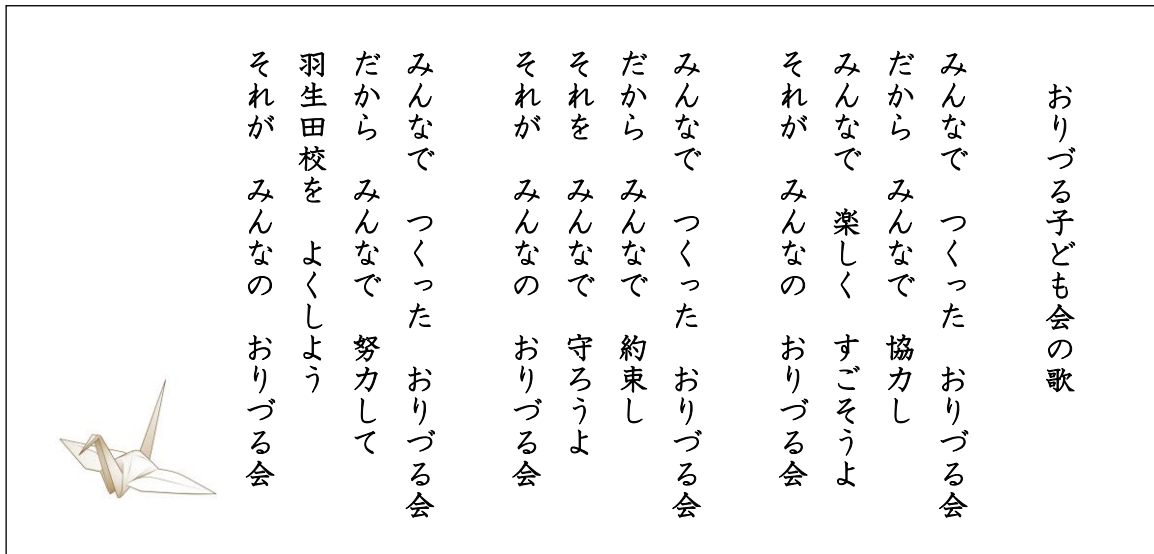 おりづる子ども会の歌
みんなで　つくった　おりづる会
だから　みんなで　協力し
みんなで　楽しく　すごそうよ
それが　みんなの　おりづる会
みんなで　つくった　おりづる会
だから　みんなで　約束し
それを　みんなで　守ろうよ
それが　みんなの　おりづる会
みんなで　つくった　おりづる会
だから　みんなで　努力して
羽生田校を　よくしよう
それが　みんなの　おりづる会